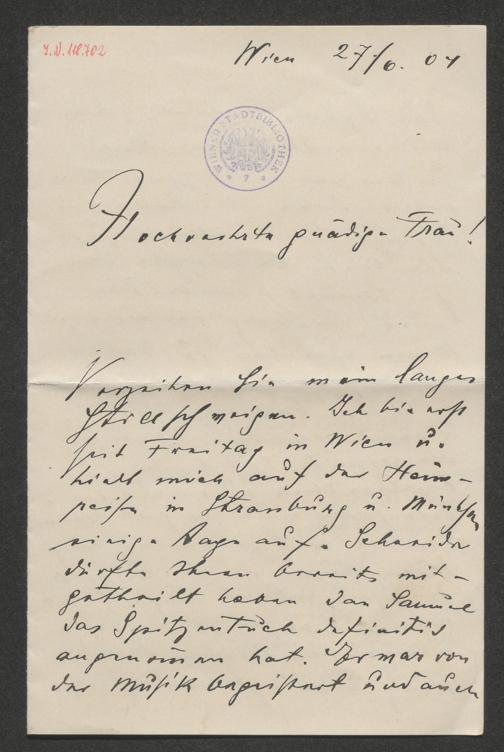 J.N. 118.702
Wien 27/6. 04
WIENER STADTBIBLIOTHEK
7
Hochverehrte gnädige Frau!
Verzeihen Sie mein langes
Stillschweigen. Ich bin erst
seit Freitag in Wien u.
hielt mich auf der Heim-
reise in Strassburg u. München
einige Tage auf. Schneider
dürfte Ihnen bereits mit-
getheilt haben dass Samuel
das Spitzentuch definitiv
angenommen hat. Er war von
der Musik begeistert und auch